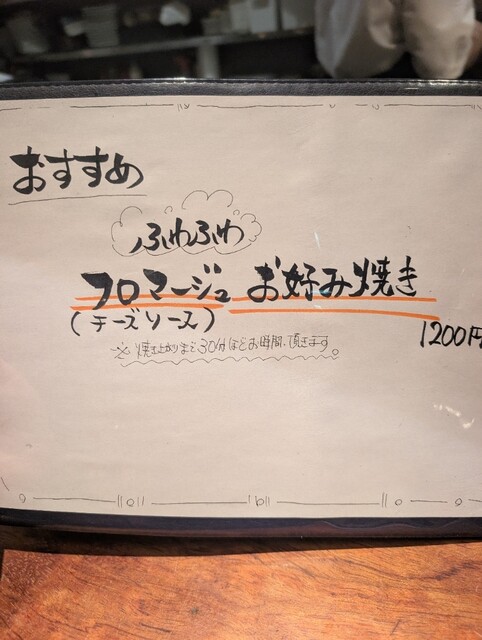 おすすめ
ふわふわ
フロマージュ お好み焼き
(チーズソース)
1200円
※焼き上がりまで30分ほどお時間、頂きます。